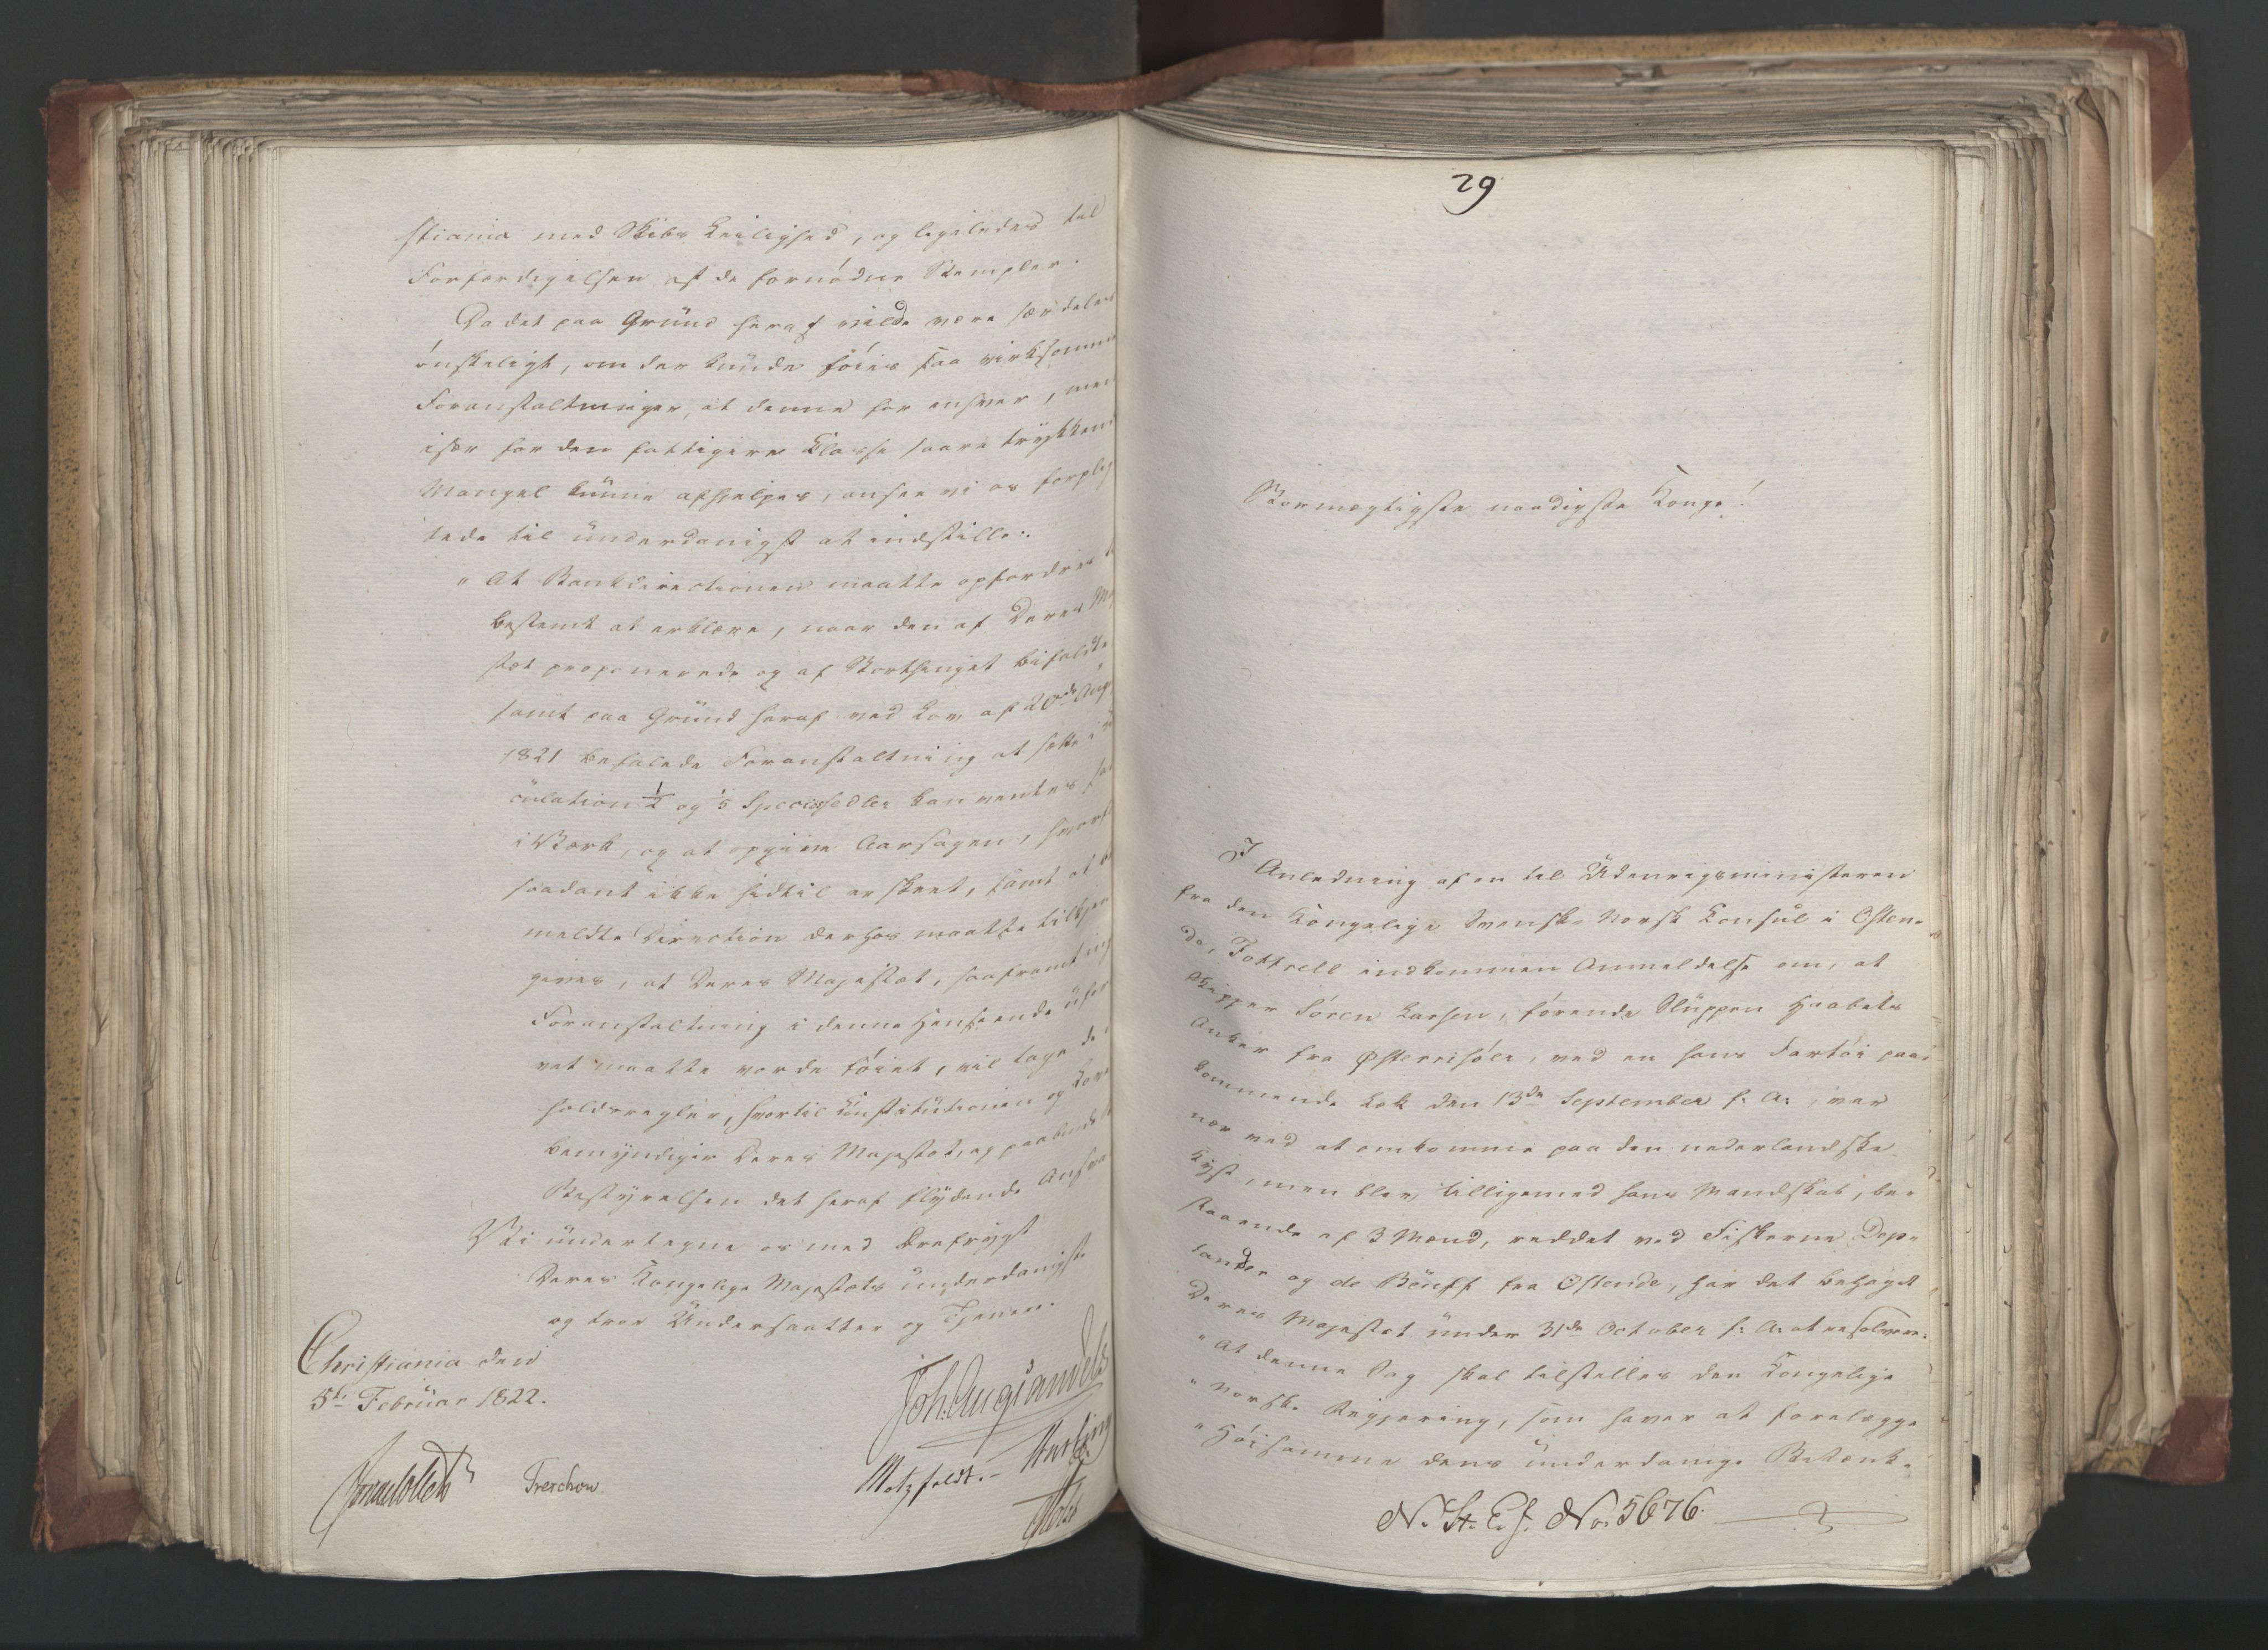 stiania med Skibs Leilighed, og ligeledes til
Forfærdigelsen af de fornødne Stempler.
Da det paa Grund heraf vilde være særdeles
ønskeligt, om der kunde føies saa virksomme
Foranstaltninger, at denne for enhver, men
især for den fattigere Klasse saare trykkend
Mangel kunne afhjelpes, ansee vi os forplig
tede til underdanigst at indstille:
" At Bankdirectionen maatte opfordres
bestemt at erklære, naar den af Deres Ma
stæt proponerede og af Storthinget bifaldte
samt paa Grund heraf ved Lov af 20de Aug.
1821 befalede Foranstaltning at sætte i
culation ½ og ⅕ Speciessedler kan ventes
i Værk, og at opgive Aarsagen, hvorfor
saadant ikke hidtil er skeet, samt at
meldte Direction derhos maatte tilkjen
gives, at Deres Majestæt, saafremt ing
Foranstaltning i denne Henseende
vet maatte vorde føiet, vil tage de
holdsregler, hvortil Constitutionen og Lov
bemyndiger Deres Majestæt, og paalægge
Bestyrelsen det heraf flydende Ansvar
Vi undertegne os med Ærefrygt
Deres Kongelige Majestæts underdanigste
og troe Undersaatter og Tjenere.
Christiania den
5te Februar 1822.
Joh. Aug Sandels
Jonas Collett Treschow Motzfeldt. Krefting
Holst
29
Stormægtigste naadigste Konge!
I Anledning af en til Udenrigsministeren
fra den Kongelige Svensk-Norsk Konsul i Osten-
de, Fottrell indkommen Anmeldelse om, at
Skipper Søren Larsen, førende Sluppen Haabets
Anker fra Østerrisøer, ved en hans Fartøi paa-
kommende Læk den 13de September f: A:, var
nær ved at omkomme paa den nederlandske
Kyst, men blev, tilligemed hans Mandskab, be-
staaende af 3 Mænd, reddet ved Fiskerne Dep-
lander og de Boeuff fra Ostende, har det behaget
Deres Majestæt under 31de October f: A: at resolvere:
" At denne Sag skal tilstilles den Kongelige
" norske Regjering, som haver at forelægge
" Høisamme dens underdanige Betænk-
N. St. E. J. No. 5676.